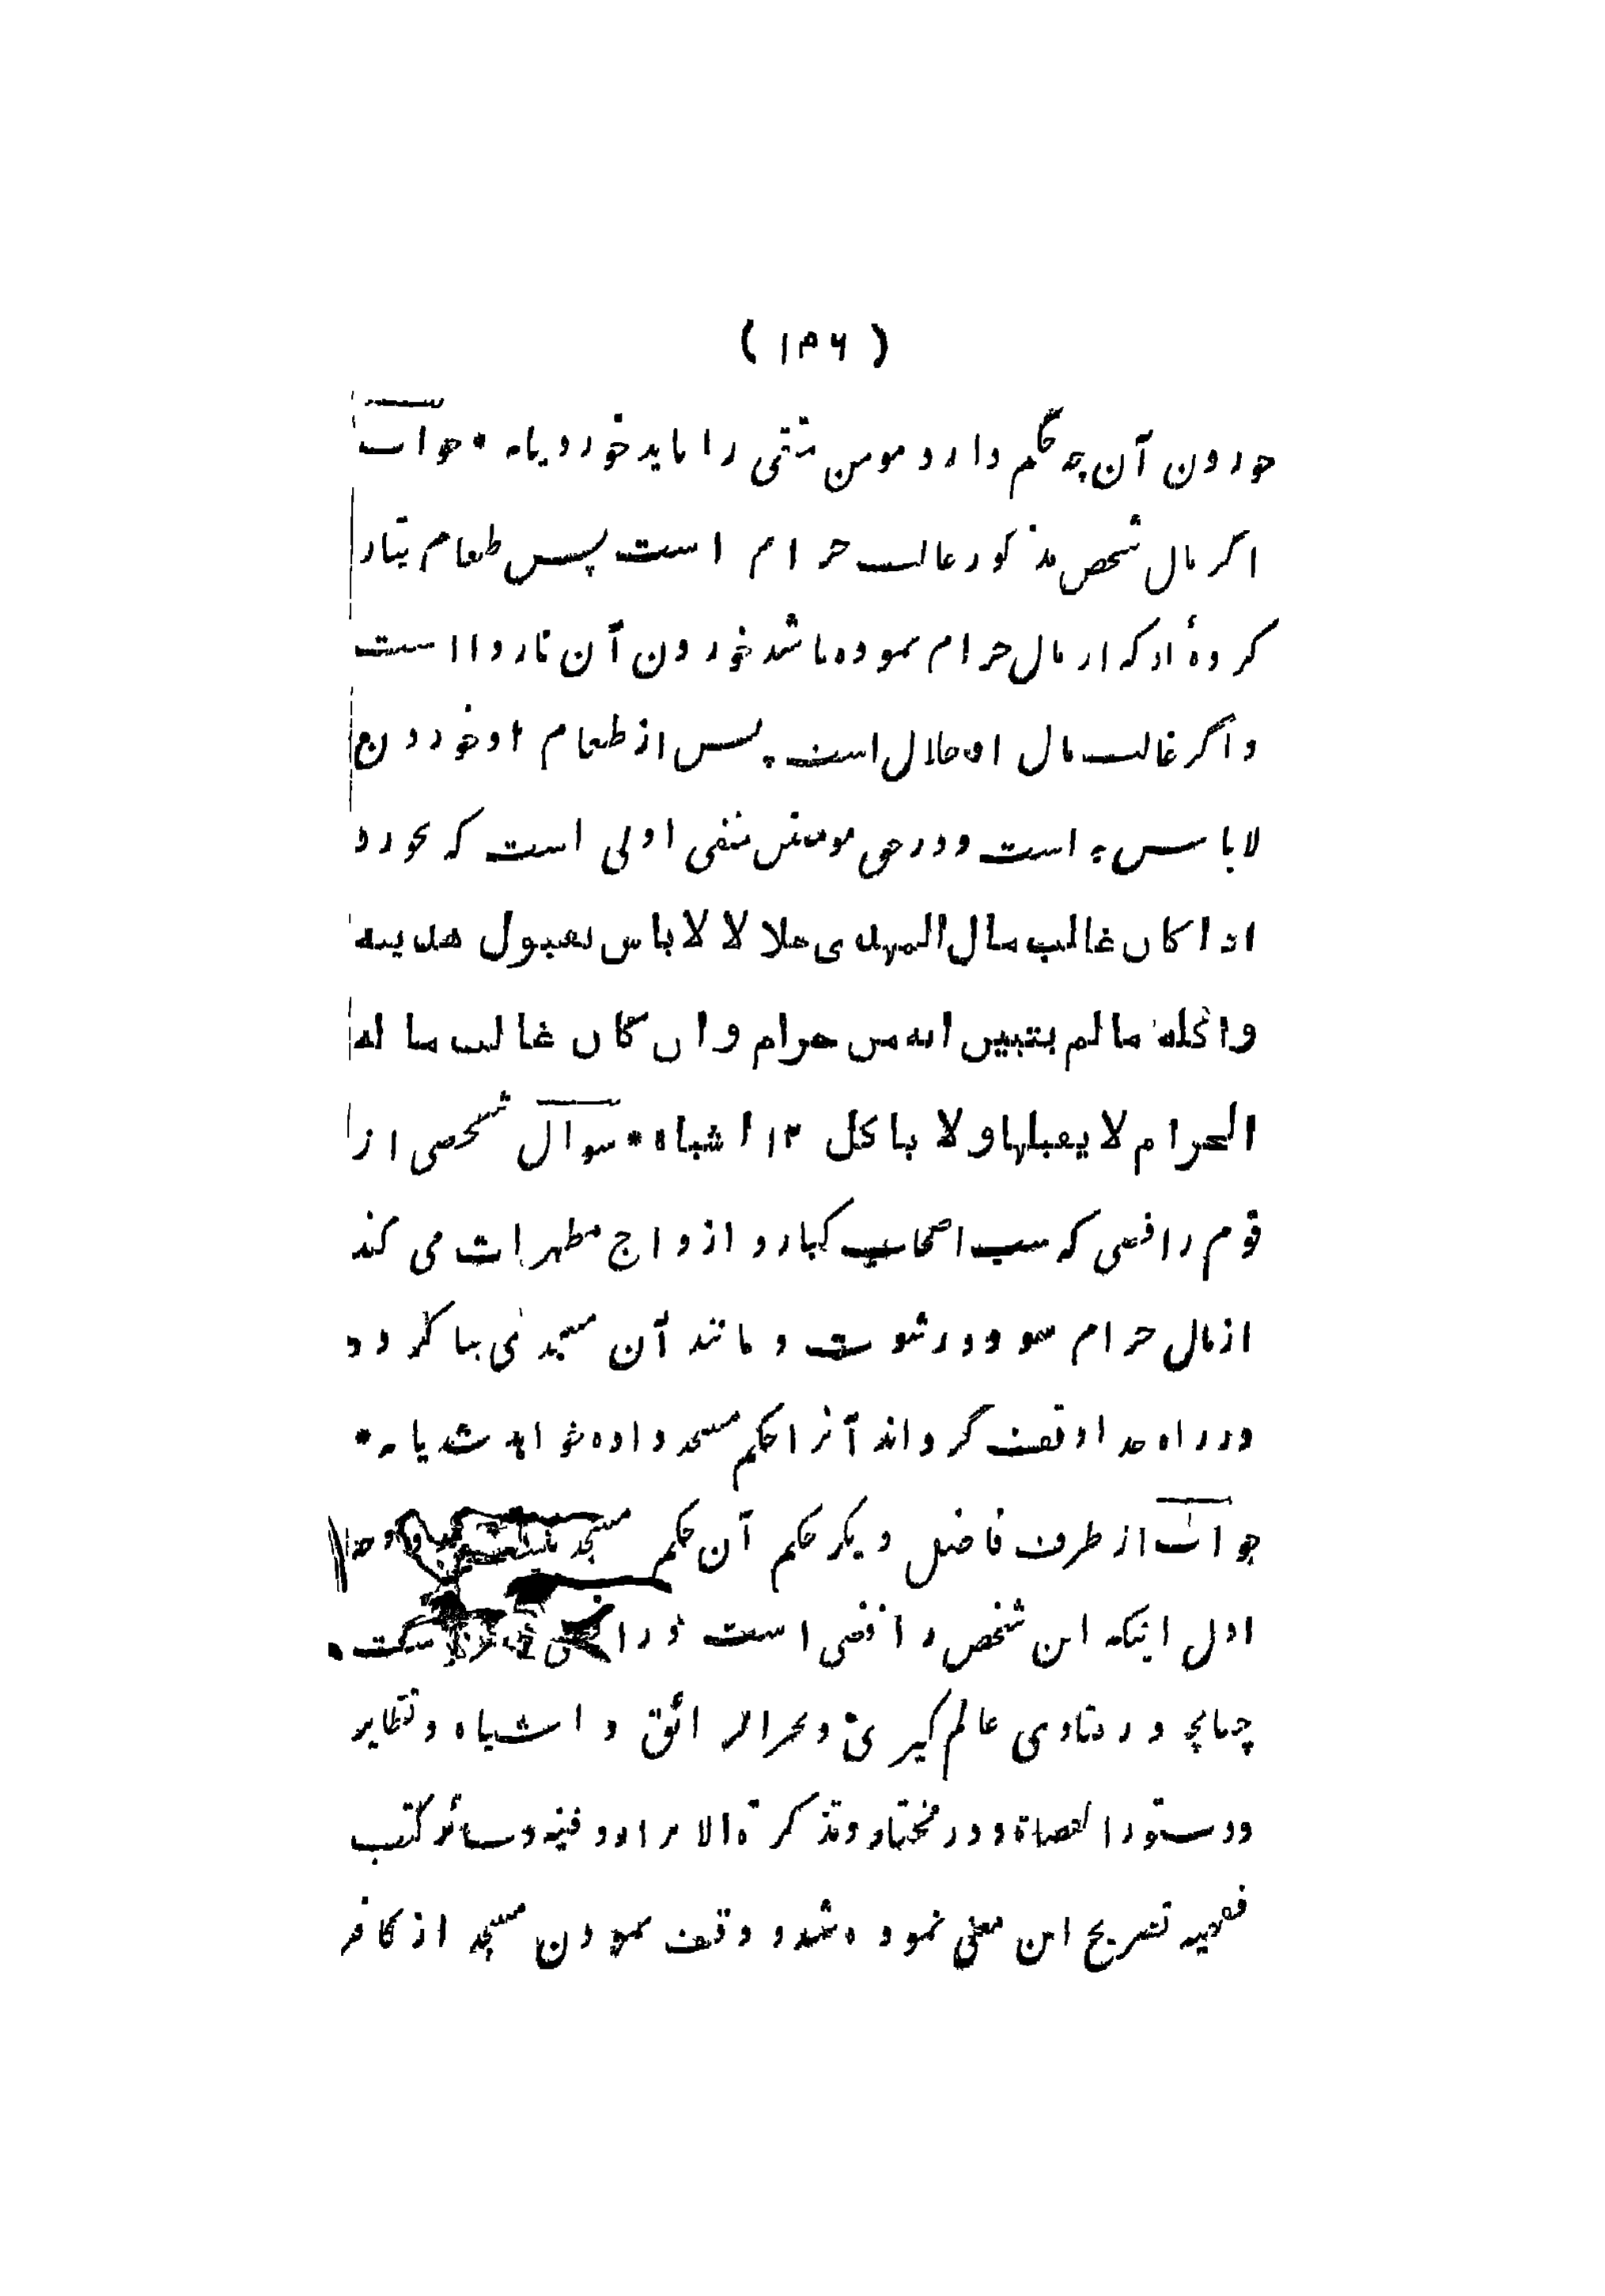 ( ۱۴۶ )
خوردن آن چه حکم دارد مومن متقی را باید خورد یا نه * جواب
اگر مال شخص مذکور غالب حرام است پس طعام تیار
کردهٔ او که از مال حرام نموده باشد خوردن آن ناروا است
و اگر غالب مال او حلال است پس از طعام او خوردن
لا باس به است و در حق مومنین متقی اولی است که نخورد
اذا کان غالب مال المهدی حلالا لا باس بقبول هدیته
واکله ما لم یتبین انه من حرام وان کان غالب ماله
الحرام لا یقبلها ولا یاکل ۱۲ اشباه * سوال شخصی از
قوم رافضی که سب اصحاب کبار و ازواج مطهرات می کند
از مال حرام سود و رشوت و مانند آن مسجدی بنا کرده
در راه خدا وقف گرداند آنرا حکم مسجد داده خواهد شد یا نه *
جواب از طرف فاضل دیگر حکم آن حکم مسجد نیست
اول اینکه این شخص رافضی است و رافضی کافر است
چنانچه در فتاوی عالم گیری و بحر الرائق و اشباه و نظایر
و دستور القضاة و در مختار و تذکرة الابرار و قنیه و سائر کتب
فقهیه تصریح این معنی نموده شد و وقف نمودن مسجد از کافر